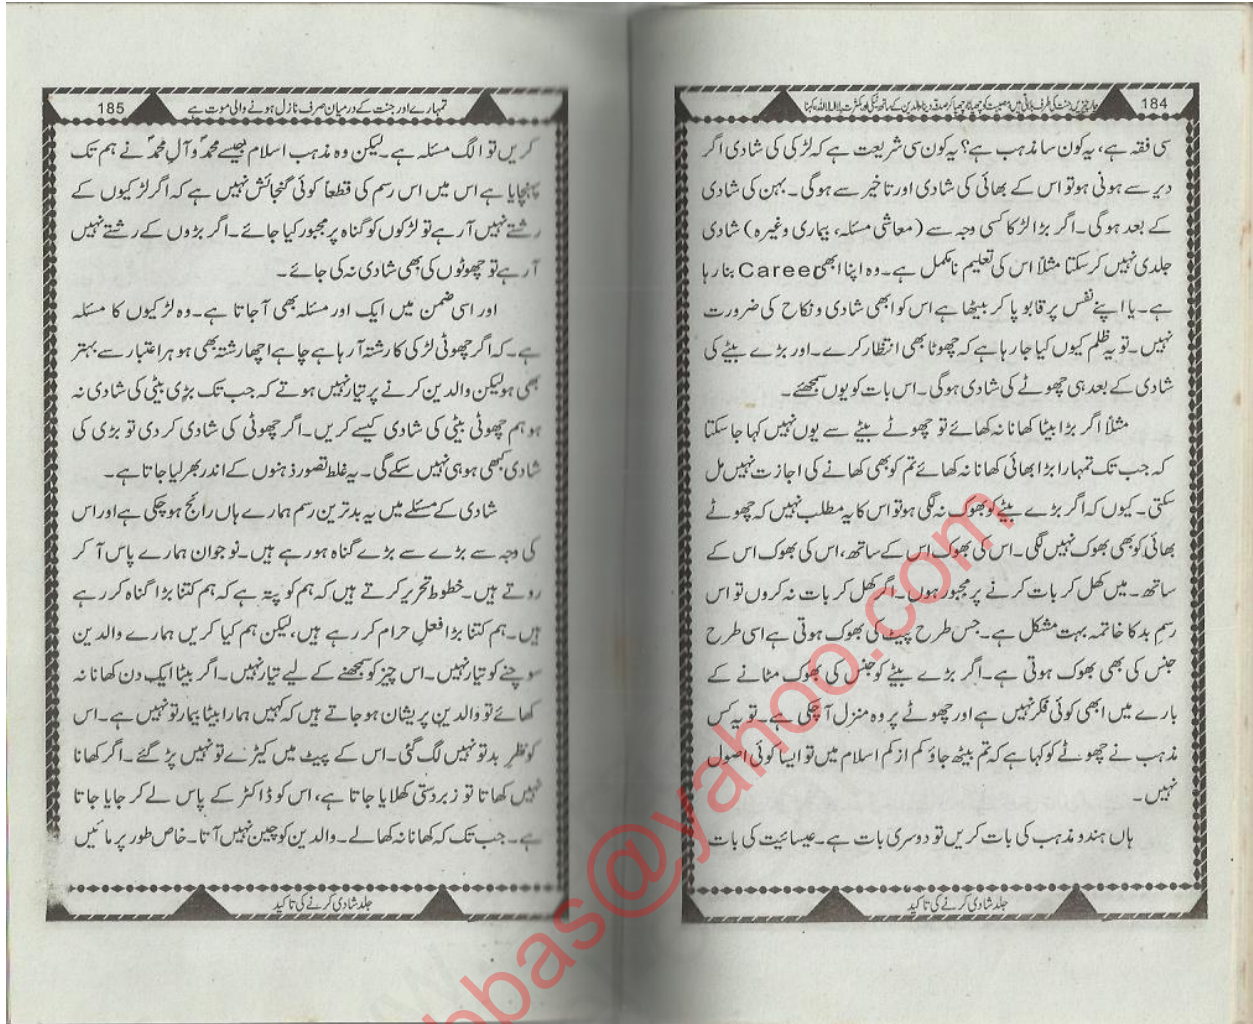 184
چار چیزیں جنت کی طرف بلاتی ہیں مصیبت کو چھپانا، چھپا کر صدقہ دینا، والدین کے ساتھ نیکی اور بکثرت لا الہ الا اللہ کہنا
سی فقہ ہے، یہ کون سا مذہب ہے؟ یہ کون سی شریعت ہے کہ لڑکی کی شادی اگر
دیر سے ہونی ہو تو اس کے بھائی کی شادی اور تاخیر سے ہوگی۔ بہن کی شادی
کے بعد ہوگی۔ اگر بڑا لڑکا کسی وجہ سے (معاشی مسئلہ، بیماری وغیرہ) شادی
جلدی نہیں کر سکتا مثلاً اس کی تعلیم نامکمل ہے۔ وہ اپنا ابھی Career بنا رہا
ہے۔ یا اپنے نفس پر قابو پا کر بیٹھا ہے اس کو ابھی شادی و نکاح کی ضرورت
نہیں۔ تو یہ ظلم کیوں کیا جا رہا ہے کہ چھوٹا بھی انتظار کرے۔ اور بڑے بیٹے کی
شادی کے بعد ہی چھوٹے کی شادی ہوگی۔ اس بات کو یوں سمجھئے۔
مثلاً اگر بڑا بیٹا کھانا نہ کھائے تو چھوٹے بیٹے سے یوں نہیں کہا جا سکتا
کہ جب تک تمہارا بڑا بھائی کھانا نہ کھائے تم کو بھی کھانے کی اجازت نہیں مل
سکتی۔ کیوں کہ اگر بڑے بیٹے کو بھوک نہ لگی ہو تو اس کا یہ مطلب نہیں کہ چھوٹے
بھائی کو بھی بھوک نہیں لگی۔ اس کی بھوک اس کے ساتھ، اس کی بھوک اس کے
ساتھ۔ میں کھل کر بات کرنے پر مجبور ہوں۔ اگر کھل کر بات نہ کروں تو اس
رسم بد کا خاتمہ بہت مشکل ہے۔ جس طرح پیٹ کی بھوک ہوتی ہے اسی طرح
جنس کی بھی بھوک ہوتی ہے۔ اگر بڑے بیٹے کو جنس کی بھوک مٹانے کے
بارے میں ابھی کوئی فکر نہیں ہے اور چھوٹے پر وہ منزل آ چکی ہے۔ تو یہ کس
مذہب نے چھوٹے کو کہا ہے کہ تم بیٹھ جاؤ کم از کم اسلام میں تو ایسا کوئی اصول
نہیں۔
ہاں ہندو مذہب کی بات کریں تو دوسری بات ہے۔ عیسائیت کی بات
جلد شادی کرنے کی تاکید
تمہارے اور جنت کے درمیان صرف نازل ہونے والی موت ہے
185
کریں تو الگ مسئلہ ہے۔ لیکن وہ مذہب اسلام جیسے محمدؐ و آلِ محمدؐ نے ہم تک
پہنچایا ہے اس میں اس رسم کی قطعاً کوئی گنجائش نہیں ہے کہ اگر لڑکیوں کے
رشتے نہیں آ رہے تو لڑکوں کو گناہ پر مجبور کیا جائے۔ اگر بڑوں کے رشتے نہیں
آ رہے تو چھوٹوں کی بھی شادی نہ کی جائے۔
اور اسی ضمن میں ایک اور مسئلہ بھی آ جاتا ہے۔ وہ لڑکیوں کا مسئلہ
ہے۔ کہ اگر چھوٹی لڑکی کا رشتہ آ رہا ہے چاہے اچھا رشتہ بھی ہو ہر اعتبار سے بہتر
بھی ہو لیکن والدین کرنے پر تیار نہیں ہوتے کہ جب تک بڑی بیٹی کی شادی نہ
ہو ہم چھوٹی بیٹی کی شادی کیسے کریں۔ اگر چھوٹی کی شادی کر دی تو بڑی کی
شادی کبھی ہو ہی نہیں سکے گی۔ یہ غلط تصور ذہنوں کے اندر بھر لیا جاتا ہے۔
شادی کے مسئلے میں یہ بدترین رسم ہمارے ہاں رائج ہو چکی ہے اور اس
کی وجہ سے بڑے سے بڑے گناہ ہو رہے ہیں۔ نوجوان ہمارے پاس آ کر
روتے ہیں۔ خطوط تحریر کرتے ہیں کہ ہم کو پتہ ہے کہ ہم کتنا بڑا گناہ کر رہے
ہیں۔ ہم کتنا بڑا فعلِ حرام کر رہے ہیں، لیکن ہم کیا کریں ہمارے والدین
سوچنے کو تیار نہیں۔ اس چیز کو سمجھنے کے لیے تیار نہیں۔ اگر بیٹا ایک دن کھانا نہ
کھائے تو والدین پریشان ہو جاتے ہیں کہ کہیں ہمارا بیٹا بیمار تو نہیں ہے۔ اس
کو نظرِ بد تو نہیں لگ گئی۔ اس کے پیٹ میں کیڑے تو نہیں پڑ گئے۔ اگر کھانا
نہیں کھاتا تو زبردستی کھلایا جاتا ہے، اس کو ڈاکٹر کے پاس لے کر جایا جاتا
ہے۔ جب تک کہ کھانا نہ کھا لے۔ والدین کو چین نہیں آتا۔ خاص طور پر مائیں
جلد شادی کرنے کی تاکید
bbas@yahoo.com